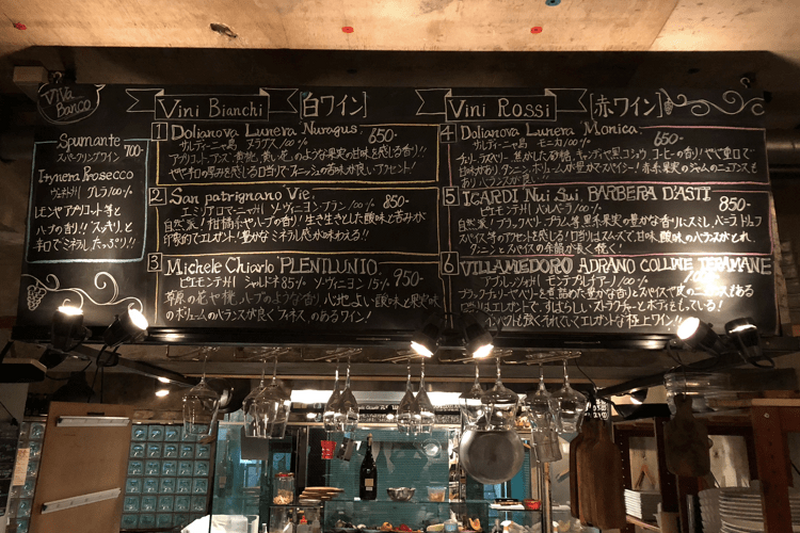 ViVa
Banco
Spumante
スパークリングワイン 700-
Itynera Prosecco
ヴェネト州 グレラ100%
レモンやアプリコット等と
ハーブの香り!!スッキリと
辛口でミネラルたっぷり!!
Vini Bianchi [白ワイン]
1 Dolianova Lunera Nuragus. 650-
サルディーニャ島 ヌラグス100%
アプリコット、アンズ、黄桃、黄い花のような果実の甘味を感じる香り!!
やや辛口の厚みを感じる口当り
2 San patrignano Vie. 850-
エミリアロマーニャ州 ソーヴィニヨンブラン100%
自然派!柑橘系やハーブの香り!生き生きとした酸味と苦みが
印象的でエレガント!豊かなミネラル感が味わえる!!
3 Michele Chiarlo "PLENILUNIO. 950-
ピエモンテ州 シャルドネ85% ソーヴィニヨン15%
草原の花や桃、ハーブのような香り 心地よい酸味と果実味
のボリュームのバランスが良く フィネスのあるワイン!
Vini Rossi [赤ワイン]
4 Dolianova Lunera "Monica. 650-
サルディーニャ島 モニカ100%
チェリー、ラズベリー、焦がした砂糖、キャンディや黒コショウ、コーヒーの香り!やや重口で
甘味があり、タンニン、ボリュームが豊かでスパイシー!赤系果実のジャムのニュアンスも
ありバランスが良い
5 ICARDI Nui Sui. BARBERA D'ASTI 850-
ピエモンテ州 バルベーラ100%
自然派!ブラックベリー、プラム等黒系果実の豊かな香りにスミレ、バニラ、トリュフ
スパイス等のアクセントを感じる!口当りはスムースで、甘味、酸味のバランスがとれ、
タンニンとスパイスの余韻が長く続く!
6 VILLAMEDORO ADRANO COLLINE TERAMANE
アブルッツォ州 モンテプルチアーノ100%
ブラックチェリーやベリーを煮詰めた豊かな香りとスパイスや皮のニュアンスもある
口当りはエレガントで、すばらしいストラクチャーとボディをもっている!
インパクトも強くそれでいてエレガントな極上ワイン!!